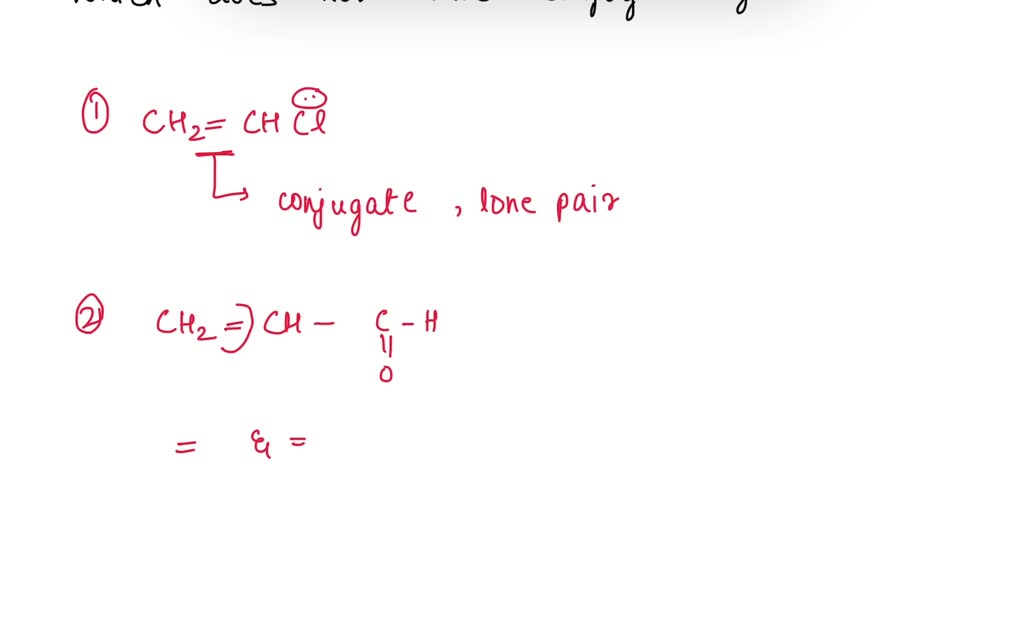 ① CH₂= CH C̈l
conjugate , lone pair
② CH₂= CH – C – H
||
O
= & =